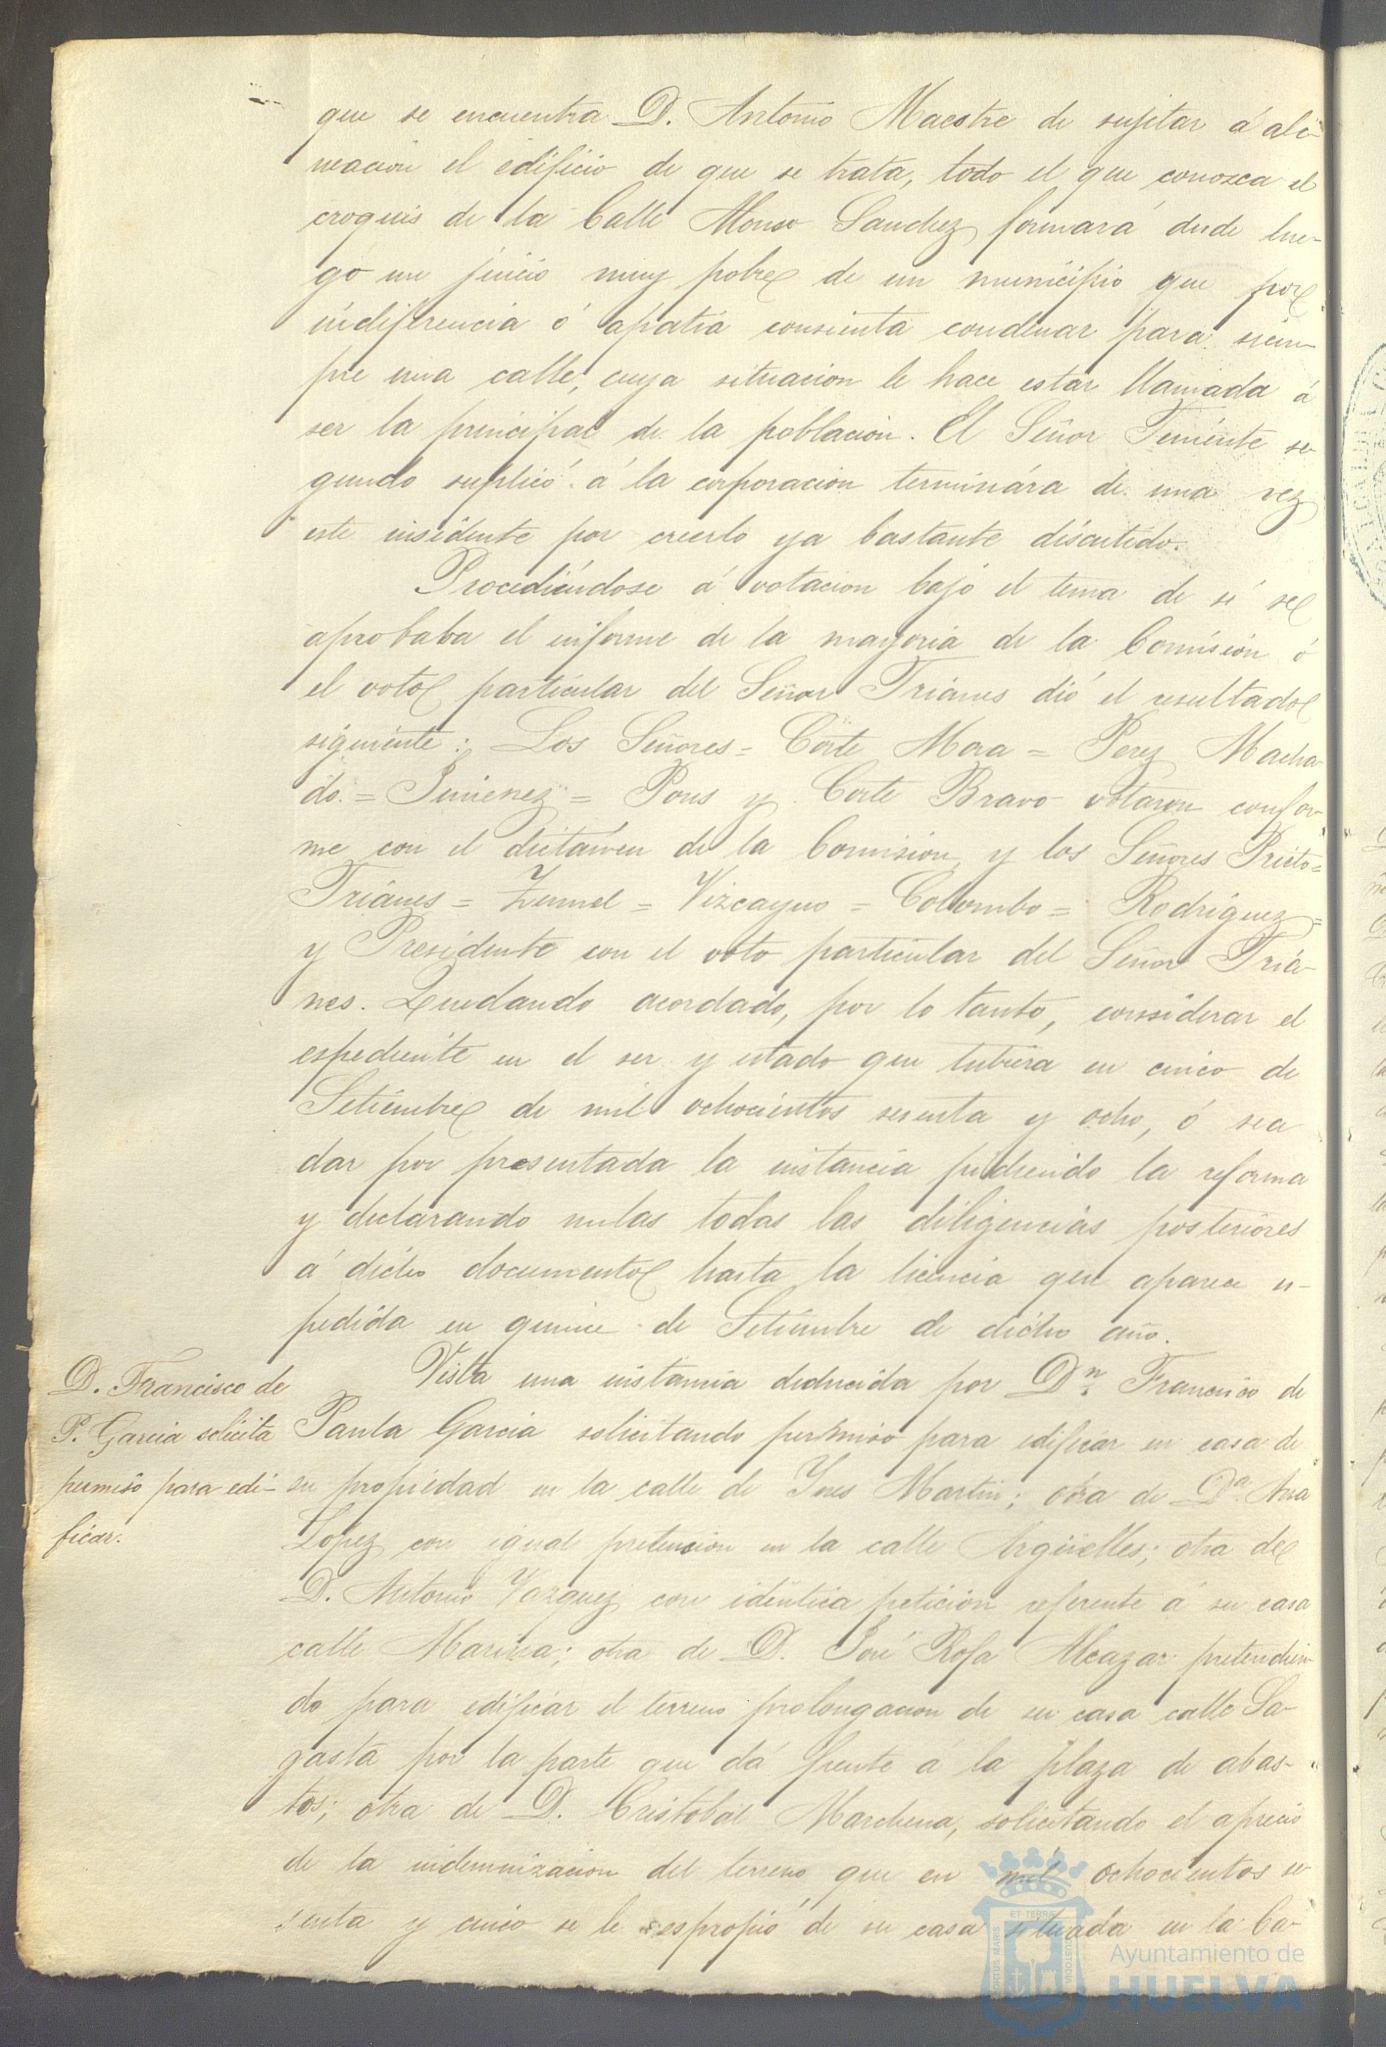 que se encuentra D. Antonio Maestre de sujetar á ali-
neacion el edificio de que se trata, todo el que conosca el
croquis de la Calle Alonso Sanchez formará desde lue-
go un juicio muy pobre de un municipio que por
indiferencia ó apatia consienta condenar para siem-
pre una calle, cuya situacion le hace estar llamada á
ser la principal de la poblacion. El Señor Teniente se-
gundo suplicó á la corporacion terminára de una vez
este insidente por creerlo ya bastante discutido.
Procediéndose á votacion bajo el tema de si se
aprobaba el informe de la mayoria de la Comision ó
el voto particular del Señor Triánes dió el resultado
siguiente: Los Señores = Corte Mora = Perez Macha-
do. = Jimenez = Pons y Corte Bravo votaron confor-
me con el dictámen de la Comision, y los Señores Prieto =
Triánes = Zunnel = Vizcayno = Colombo = Rodriguez =
y Presidente con el voto particular del Señor Triá-
nes. Quedando acordado, por lo tanto, considerar el
espediente en el ser y estado que tubiera en cinco de
Setiembre de mil ochocientos sesenta y ocho, ó sea
dar por presentada la instancia pidiendo la reforma
y declarando nulas todas las diligencias posteriores
á dicho documento hasta la licencia que aparece es-
pedida en quince de Setiembre de dicho año.
D. Francisco de
P. Garcia solicita
permiso para edi-
ficar.
Vista una instancia deducida por Dn. Francisco de
Paula Garcia solicitando permiso para edificar en casa de
su propiedad en la calle de Ynes Martin; otra de Da. Ana
Lopez con igual pretencion en la calle Argüelles; otra de
D. Antonio Vazquez con idéntica peticion referente á su casa
calle Marina; otra de D. José Rofa Alcazar pretendien-
do para edificar el terreno prolongacion de su casa calle Sa-
gasta por la parte que dá frente á la plaza de abas-
tos; otra de D. Cristobal Marchena, solicitando el aprecio
de la indemnizacion del terreno que en mil ochocientos se-
senta y cinco se le espropió de su casa situada en la Ca-
Ayuntamiento de
HUELVA